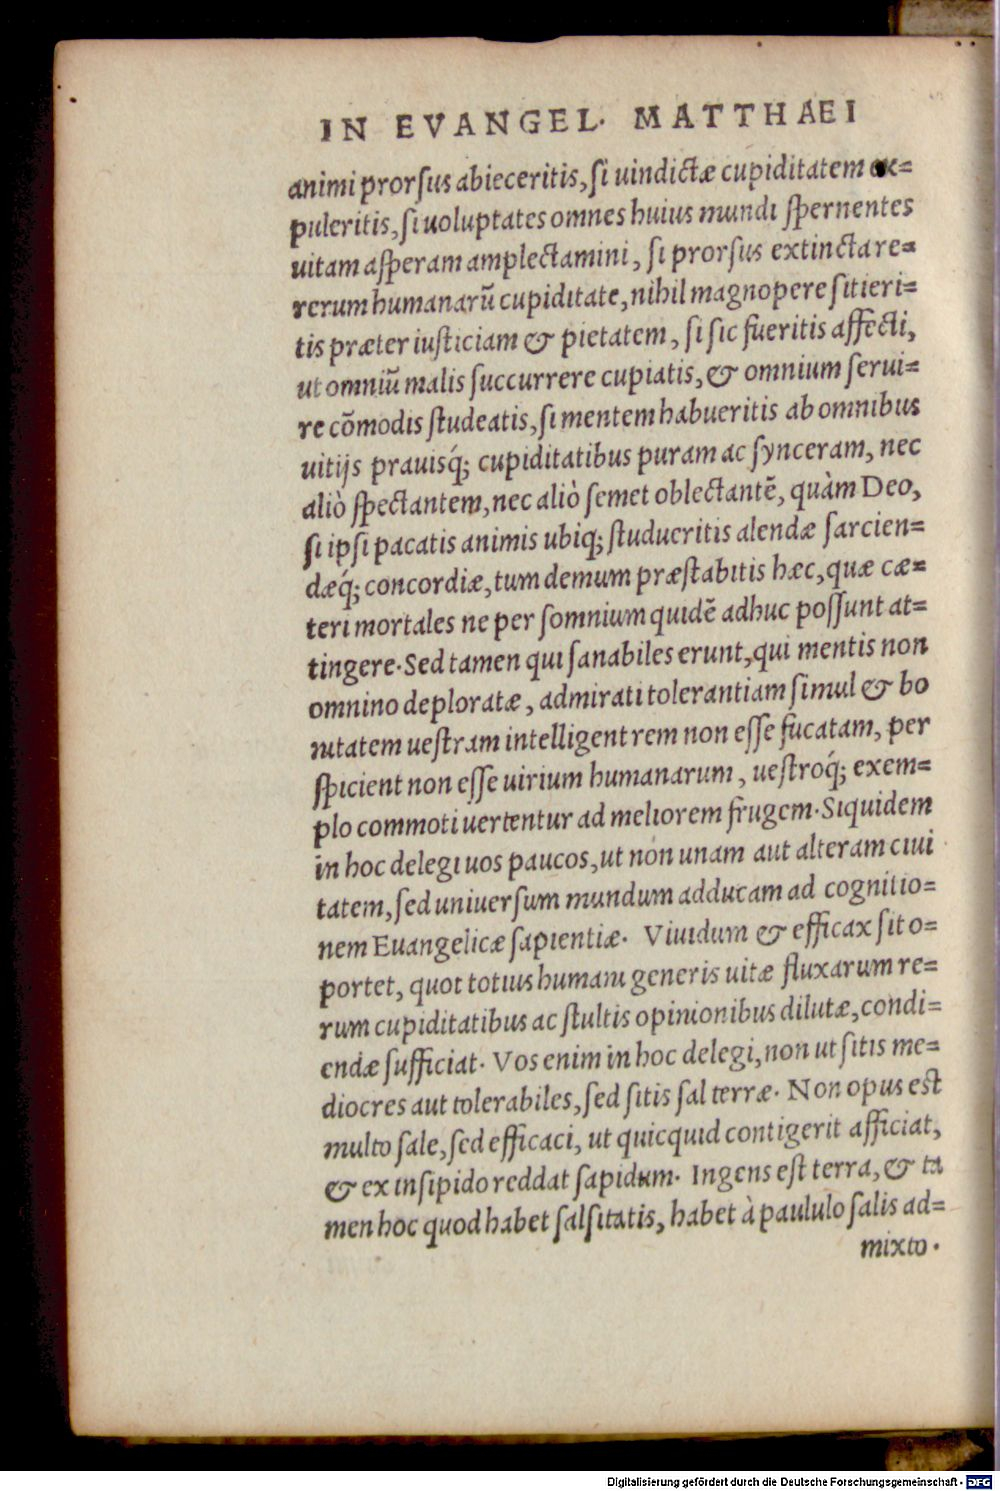 IN EVANGEL. MATTHAEI
animi prorsus abieceritis, si uindictæ cupiditatem ex=
puleritis, si uoluptates omnes huius mundi spernentes
uitam asperam amplectamini, si prorsus extincta re=
rerum humanarũ cupiditate, nihil magnopere sitieri=
tis præter iusticiam & pietatem, si sic fueritis affecti,
ut omniũ malis succurrere cupiatis, & omnium serui=
re cõmodis studeatis, si mentem habueritis ab omnibus
uitijs prauisq́; cupiditatibus puram ac synceram, nec
aliò spectantem, nec aliò semet oblectantẽ, quàm Deo,
si ipsi pacatis animis ubiq; studueritis alendæ sarcien=
dæq́; concordiæ, tum demum præstabitis hæc, quæ cæ=
teri mortales ne per somnium quidẽ adhuc possunt at=
tingere. Sed tamen qui sanabiles erunt, qui mentis non
omnino deploratæ, admirati tolerantiam simul & bo
nitatem uestram intelligent rem non esse fucatam, per
spicient non esse uirium humanarum, uestroq́; exem=
plo commoti uertentur ad meliorem frugem. Siquidem
in hoc delegi uos paucos, ut non unam aut alteram ciui
tatem, sed uniuersum mundum adducam ad cognitio=
nem Euangelicæ sapientiæ. Viuidum & efficax sit o=
portet, quot totius humani generis uitæ fluxarum re=
rum cupiditatibus ac stultis opinionibus dilutæ, condi=
endæ sufficiat. Vos enim in hoc delegi, non ut sitis me=
diocres aut tolerabiles, sed sitis sal terræ. Non opus est
multo sale, sed efficaci, ut quicquid contigerit afficiat,
& ex insipido reddat sapidum. Ingens est terra, & ta
men hoc quod habet salsitatis, habet à paululo salis ad=
mixto.
Digitalisierung gefördert durch die Deutsche Forschungsgemeinschaft - DFG